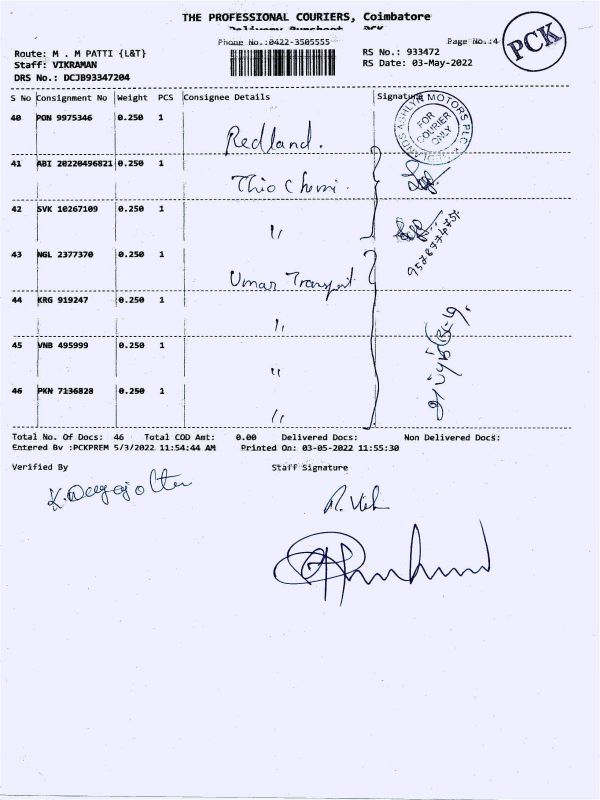 THE PROFESSIONAL COURIERS, Coimbatore
Delivery Runsheet PCK
Phone No.:0422-3505555
Page No.:4
PCK
Route: M . M PATTI {L&T}
RS No.: 933472
Staff: VIKRAMAN
RS Date: 03-May-2022
DRS No.: DCJB93347204
S No Consignment No Weight PCS Consignee Details Signature
40 PON 9975346 0.250 1
Redland.
FOR COURIER ONLY
41 ABI 20220496821 0.250 1
42 SVK 10267109 0.250 1
〃
43 NGL 2377370 0.250 1
Umar Transport
44 KRG 919247 0.250 1
〃
45 VNB 495999 0.250 1
〃
46 PKN 7136828 0.250 1
〃
Total No. Of Docs: 46 Total COD Amt: 0.00 Delivered Docs: Non Delivered Docs:
Entered By :PCKPREM 5/3/2022 11:54:44 AM Printed On: 03-05-2022 11:55:30
Verified By Staff Signature